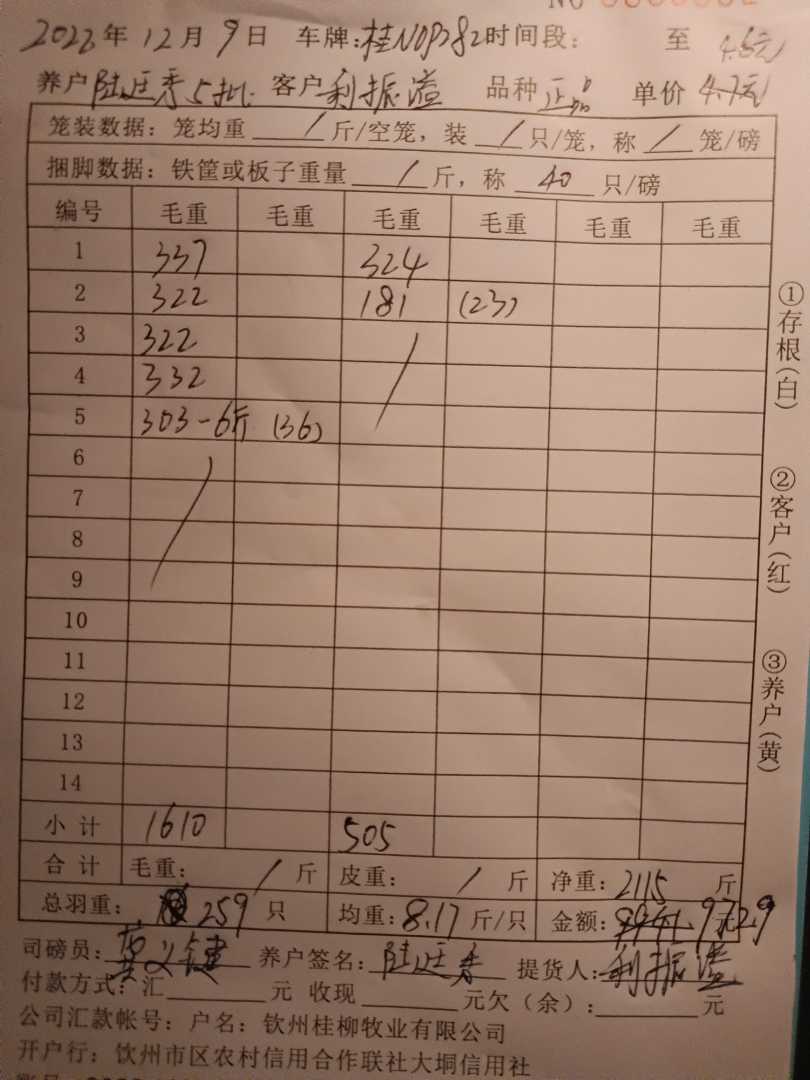 2023年 12月 9日 车牌:桂N0P282时间段: 至 4.6元
养户 陆廷秀5批 客户 利振溢 品种 正品 单价 4.7元
笼装数据: 笼均重 / 斤/空笼, 装 / 只/笼, 称 / 笼/磅
捆脚数据: 铁筐或板子重量 / 斤, 称 40 只/磅
编号 毛重 毛重 毛重 毛重 毛重 毛重
1 337 324
2 322 181 (23)
3 322
4 332
5 303-6斤 (36)
6
7
8
9
10
11
12
13
14
小 计 1610 505
合 计 毛重: / 斤 皮重: / 斤 净重: 2115 斤
总羽重: 259 只 均重: 8.17 斤/只 金额: 9729 元
司磅员: 养户签名: 陆廷秀 提货人: 利振溢
付款方式: 汇 元 收现 元欠(余): 元
公司汇款帐号: 户名: 钦州桂柳牧业有限公司
开户行: 钦州市区农村信用合作联社大垌信用社
①存根(白)
②客户(红)
③养户(黄)